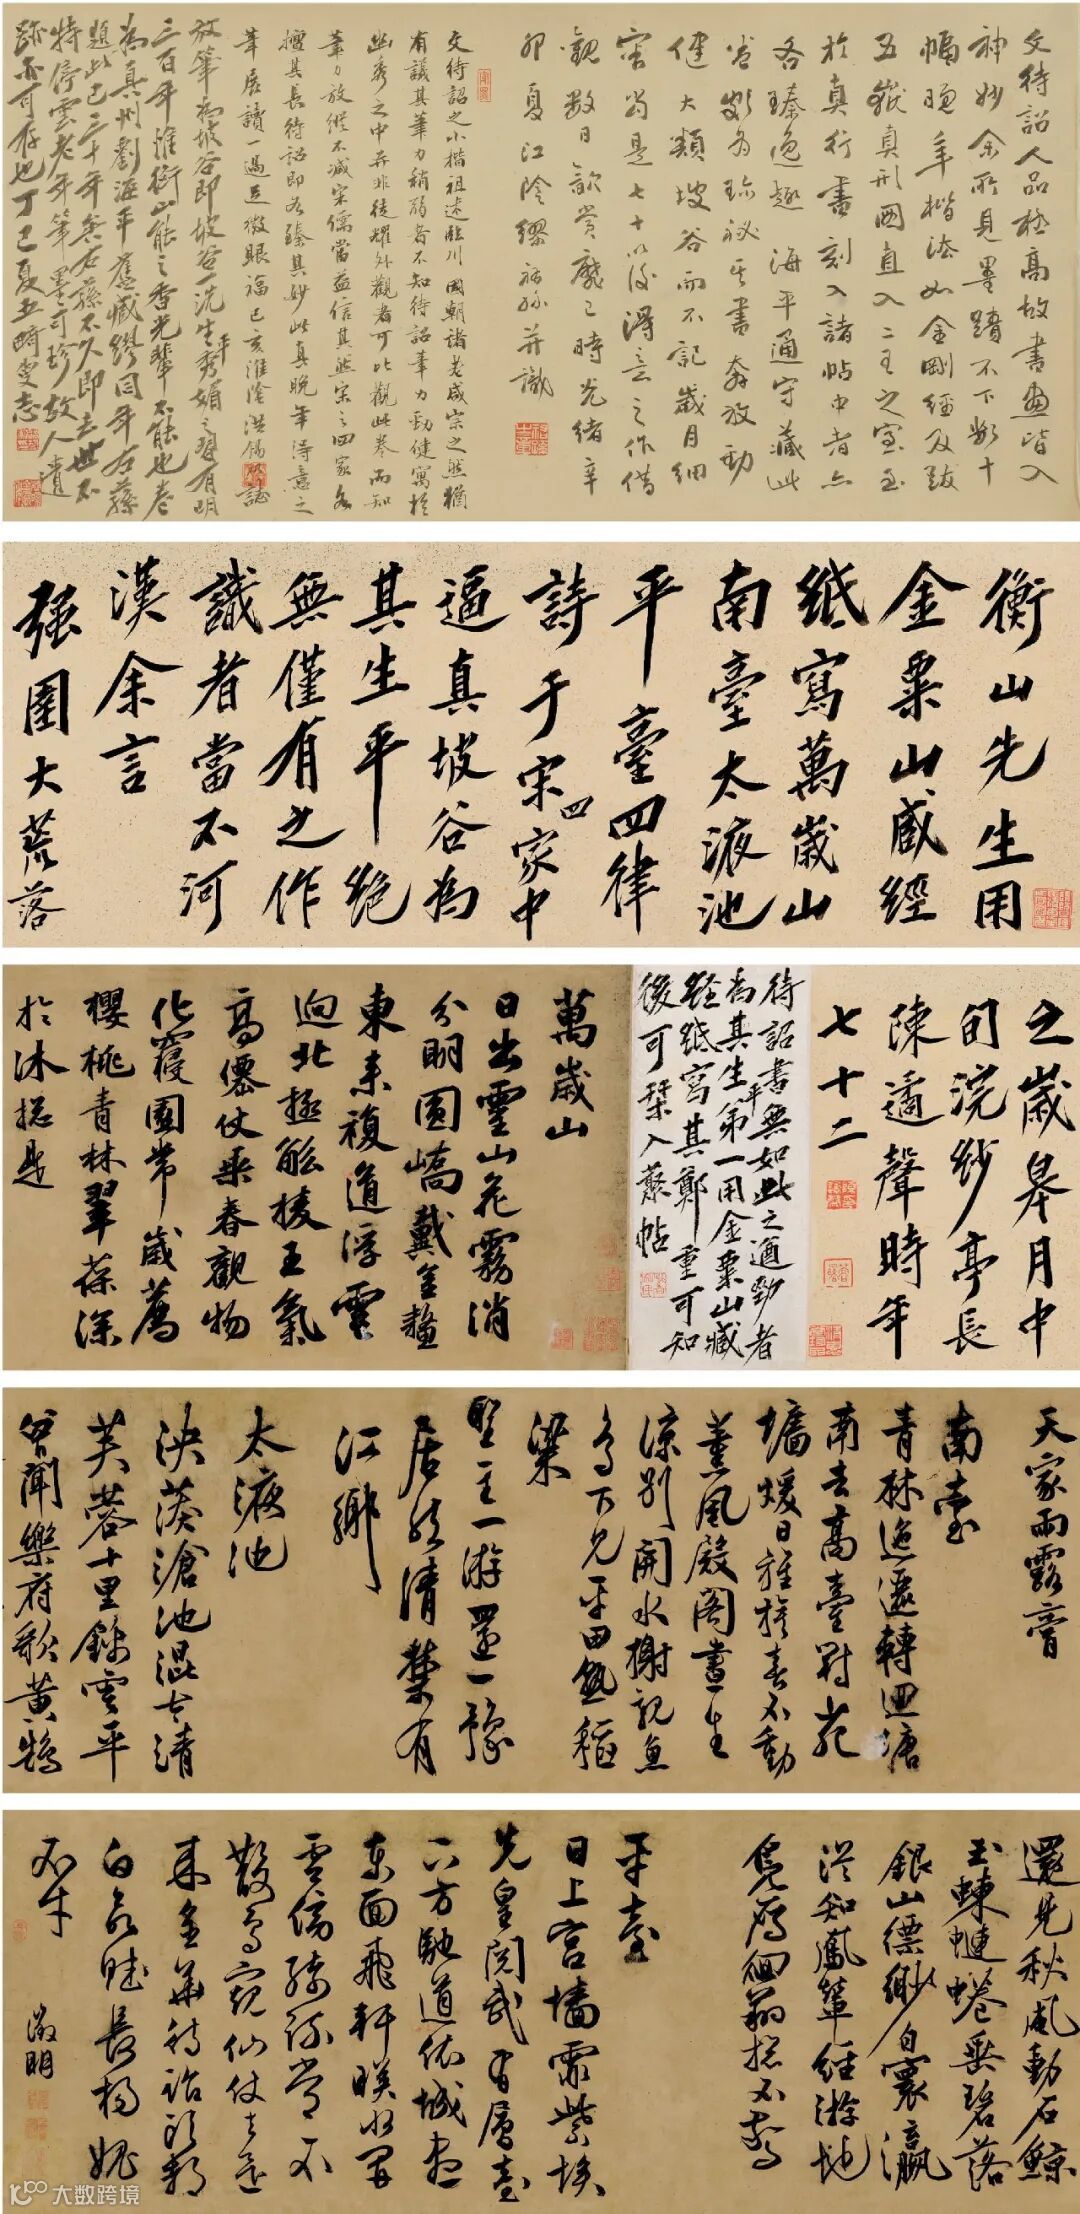 文待詔人品極高故書畫皆入
神妙余所見墨蹟不下數十
幅晚年楷法如金剛經及跋
五嶽真形圖直入二王之室至
於真行書刻入諸帖中者亦
各臻逸趣海平通守藏此
卷為珍秘其書奔放勁
健大類坡谷而不記歲月細
審當是七十以後得意之作借
觀數日歆賞靡已時光緒辛
卯夏江陰繆祐孫并識
文待詔之小楷祖述臨川國朝諸老咸宗之然猶
有議其筆力稍弱者不知待詔筆力勁健寓於
幽秀之中并非徒耀外觀者可比觀此卷而知
筆力放縱不減宋儒當益信其然宋之四家各
擅其長待詔即各臻其妙此真晚年得意之
筆展讀一過足徵眼福己亥淮陰洪錫誌
放筆為坡谷即坡谷一洗生平秀媚之習有明
三百年惟衡山能之香光輩不能也卷
為真州劉海平舊藏繆同年右蓀
題此已三十年矣右蓀不久即去世不
特停雲老年筆墨可珍故人遺
跡亦可存也丁巳夏五畸叟志
衡山先生用
金粟山藏經
紙寫萬歲山
南臺太液池
平臺四律
詩于宋四家中
逼真坡谷為
其生平絕
無僅有之作
識者當不河
漢余言
強圉大荒落
之歲皋月中
旬浣紗亭長
陳遹聲時年
七十二
待詔書無如此之遒勁者
為其生平第一用金粟山藏
經紙寫其鄭重可知
後可槧入叢帖
萬歲山
日出靈山花霧消
分明圓嶠戴金鼇
東來複道浮雲
迥北極觚棱王氣
高僊仗乘春觀物
化寢園常歲薦
櫻桃青林翠葆深
於沐總是
天家雨露膏
南臺
青林迤邐轉迴塘
南去高臺對苑
墻煖日旌旗春不動
薰風殿閣晝生
涼別開水榭親魚
鳥下見平田熟稻
粱
聖主一游還一豫
居然清禁有
江鄉
太液池
泱漭滄池混太清
芙蓉十里錦雲平
曾聞樂府歌黃鵠
還見秋風動石鯨
玉蝀蜿蜷垂碧落
銀山縹緲自寰瀛
從知鳳輦經游地
鳧鴈徊翔總不驚
平臺
日上宮墻霏紫埃
先皇閱武有層臺
下方馳道依城盡
東面飛軒映水開
雲傍綺疏常不
散鳥窺仙仗去還
來金華待詔頭都
白欲賦長楊愧
不才
徵明
大数跨境